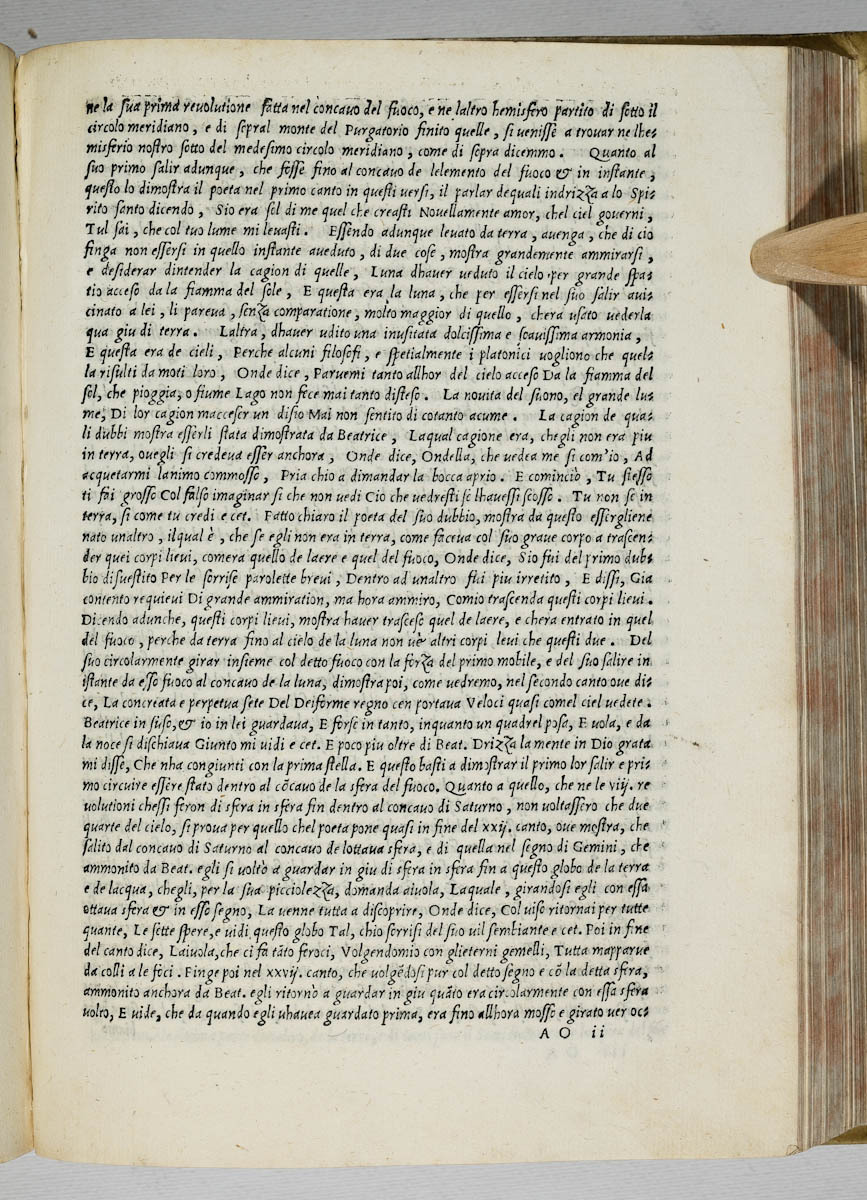 ne la sua prima revolutione fatta nel concavo del fuoco, e ne laltro hemisfero partito di sotto il
circolo meridiano, e di sopral monte del Purgatorio finito quelle, si venisse a trovar ne lhe⸗
misferio nostro sotto del medesimo circolo meridiano, come di sopra dicemmo. Quanto al
suo primo salir adunque, che fosse fino al concavo de lelemento del fuoco & in instante,
questo lo dimostra il poeta nel primo canto in questi versi, il parlar dequali indrizza a lo Spi⸗
rito santo dicendo, Sio era sol di me quel che creasti Novellamente amor, chel ciel governi,
Tul sai, che col tuo lume mi levasti. Essendo adunque levato da terra, avenga, che di cio
finga non essersi in quello instante aveduto, di due cose, mostra grandemente ammirarsi,
e desiderar dintender la cagion di quelle, Luna dhaver veduto il cielo per grande spa⸗
tio acceso da la fiamma del sole, E questa era la luna, che per essersi nel suo salir avi⸗
cinato a lei, li pareva, senza comparatione, molto maggior di quello, chera usato vederla
qua giu di terra. Laltra, dhaver udito una inusitata dolcissima e soavissima armonia,
E questa era de cieli, Perche alcuni filosofi, e spetialmente i platonici vogliono che quel⸗
la risulti da moti loro, Onde dice, Parvemi tanto allhor del cielo acceso Da la fiamma del
sol, che pioggia, o fiume Lago non fece mai tanto disteso. La novita del suono, el grande lu⸗
me, Di lor cagion macceser un disio Mai non sentito di cotanto acume. La cagion de qua⸗
li dubbi mostra esserli stata dimostrata da Beatrice, Laqual cagione era, chegli non era piu
in terra, ovegli si credeva esser anchora, Onde dice, Ondella, che vedea me si com'io, Ad
acquetarmi lanimo commosso, Pria chio a dimandar la bocca aprio. E cominciò, Tu stesso
ti fai grosso Col falso imaginar si che non vedi Cio che vedresti se lhavessi scosso. Tu non se in
terra, si come tu credi e cet. Fatto chiaro il poeta del suo dubbio, mostra da questo essergliene
nato unaltro, ilqual è, che se egli non era in terra, come faceva col suo grave corpo a trascen⸗
der quei corpi lievi, comera quello de laere e quel del fuoco, Onde dice, Sio fui del primo dub⸗
bio disvestito Per le sorrise parolette brevi, Dentro ad unaltro fui piu irretito, E dissi, Gia
contento requievi Di grande ammiration, ma hora ammiro, Comio trascenda questi corpi lievi.
Dicendo adunche, questi corpi lievi, mostra haver trasceso quel de laere, e chera entrato in quel
del fuoco, perche da terra fino al cielo de la luna non ve altri corpi levi che questi due. Del
suo circolarmente girar insieme col detto fuoco con la forza del primo mobile, e del suo salire in
istante da esso fuoco al concavo de la luna, dimostra poi, come vedremo, nel secondo canto ove di⸗
ce, La concreata e perpetua sete Del Deiforme regno cen portava Veloci quasi comel ciel vedete.
Beatrice in suso, & io in lei guardava, E forse in tanto, inquanto un quadrel posa, E vola, e da
la noce si dischiava Giunto mi vidi e cet. E poco piu oltre di Beat. Drizza la mente in Dio grata
mi disse, Che nha congiunti con la prima stella. E questo basti a dimostrar il primo lor salir e pri⸗
mo circuire essere stato dentro al cōcavo de la sfera del fuoco. Quanto a quello, che ne le vij. re
volutioni chessi feron di sfera in sfera fin dentro al concavo di Saturno, non voltassero che due
quarte del cielo, si prova per quello chel poeta pone quasi in fine del xxij. canto, ove mostra, che
salito dal concavo di Saturno al concavo de lottava sfera, e di quella nel segno di Gemini, che
ammonito da Beat. egli si voltò a guardar in giu di sfera in sfera fin a questo globo de la terra
e de lacqua, chegli, per la sua picciolezza, domanda aivola, Laquale, girandosi egli con essa
ottava sfera & in esso segno, La venne tutta a discoprire, Onde dice, Col viso ritornai per tutte
quante, Le sette spere, e vidi questo globo Tal, chio sorrisi del suo vil sembiante e cet. Poi in fine
del canto dice, Laivola, che ci fa tāto feroci, Volgendomio con glieterni gemelli, Tutta mapparve
da colli a le foci. Finge poi nel xxvij. canto, che volgēdosi pur col detto segno e cō la detta sfera,
ammonito anchora da Beat. egli ritornò a guardar in giu quāto era circolarmente con essa sfera
volto, E vide, che da quando egli vhavea guardato prima, era fino allhora mosso e girato ver oc⸗
A O ii